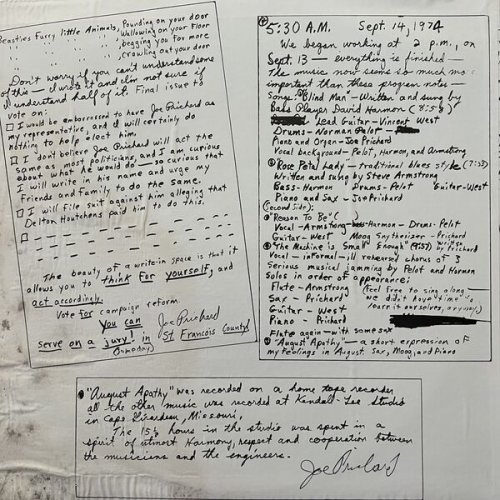 Beasties Furry little Animals, Pounding on your door
Wallowing on your Floor
begging you for more
crawling out your door
Don't worry if you can't understand some
of this — I wrote it and I'm not sure if
I understand half of it. Final issue to
vote on:
□ I would be embarrassed to have Joe Prichard as
my representative, and I will certainly do
nothing to help elect him.
□ I don't believe Joe Prichard will act the
same as most politicians, and I am curious
about what he would do — so curious that
I will write in his name and urge my
Friends and family to do the same.
□ I will file suit against him alleging that
Delton Houtchens paid him to do this.
□
□
□
The beauty of a write-in space is that it
allows you to think for yourself, and
act accordingly.
Vote for campaign reform.
You can
serve on a jury! in
Joe Prichard
St Francois County
5:30 A.M. Sept. 14, 1974
We began working at 2 p.m., on
Sept. 13 — everything is finished —
The music now seems so much mo
important than these program notes —
Songs: Blind Man — Written and sung by
Bass Player David Harmon
Lead Guitar — Vincent West
Drums — Norman Pelot
Piano and Organ — Joe Prichard
Vocal background — Pelot, Harmon, and Armstrong
Rose Petal Lady — traditional blues style (7:33)
Written and sung by Steve Armstrong
Bass — Harmon Drums — Pelot Guitar — West
Piano and Sax — Joe Prichard
(second side):
"Reason To Be" ( )
Vocal — Armstrong Harmon — Drums — Pelot
Guitar — West Moog Synthesizer — Prichard
"The Machine is Small Enough" (9:57) by Prichard
Vocal — informal — ill rehearsed chorus of 3
Serious musical jamming by Pelot and Harmon
Solos in order of appearance:
Flute — Armstrong (Feel free to sing along —
Sax — Prichard we didn't have time to
Guitar — West learn it ourselves, anyway)
Piano — Prichard
Flute again — with some sax
"August Apathy" — a short expression of
my feelings in August. Sax, Moog, and Piano
"August Apathy" was recorded on a home tape recorder
all the other music was recorded at Kendall-Lee studio
in Cape Girardeau, Missouri.
The 15½ hours in the studio was spent in a
spirit of utmost Harmony, respect and cooperation between
the musicians and the engineers.
Joe Prichard